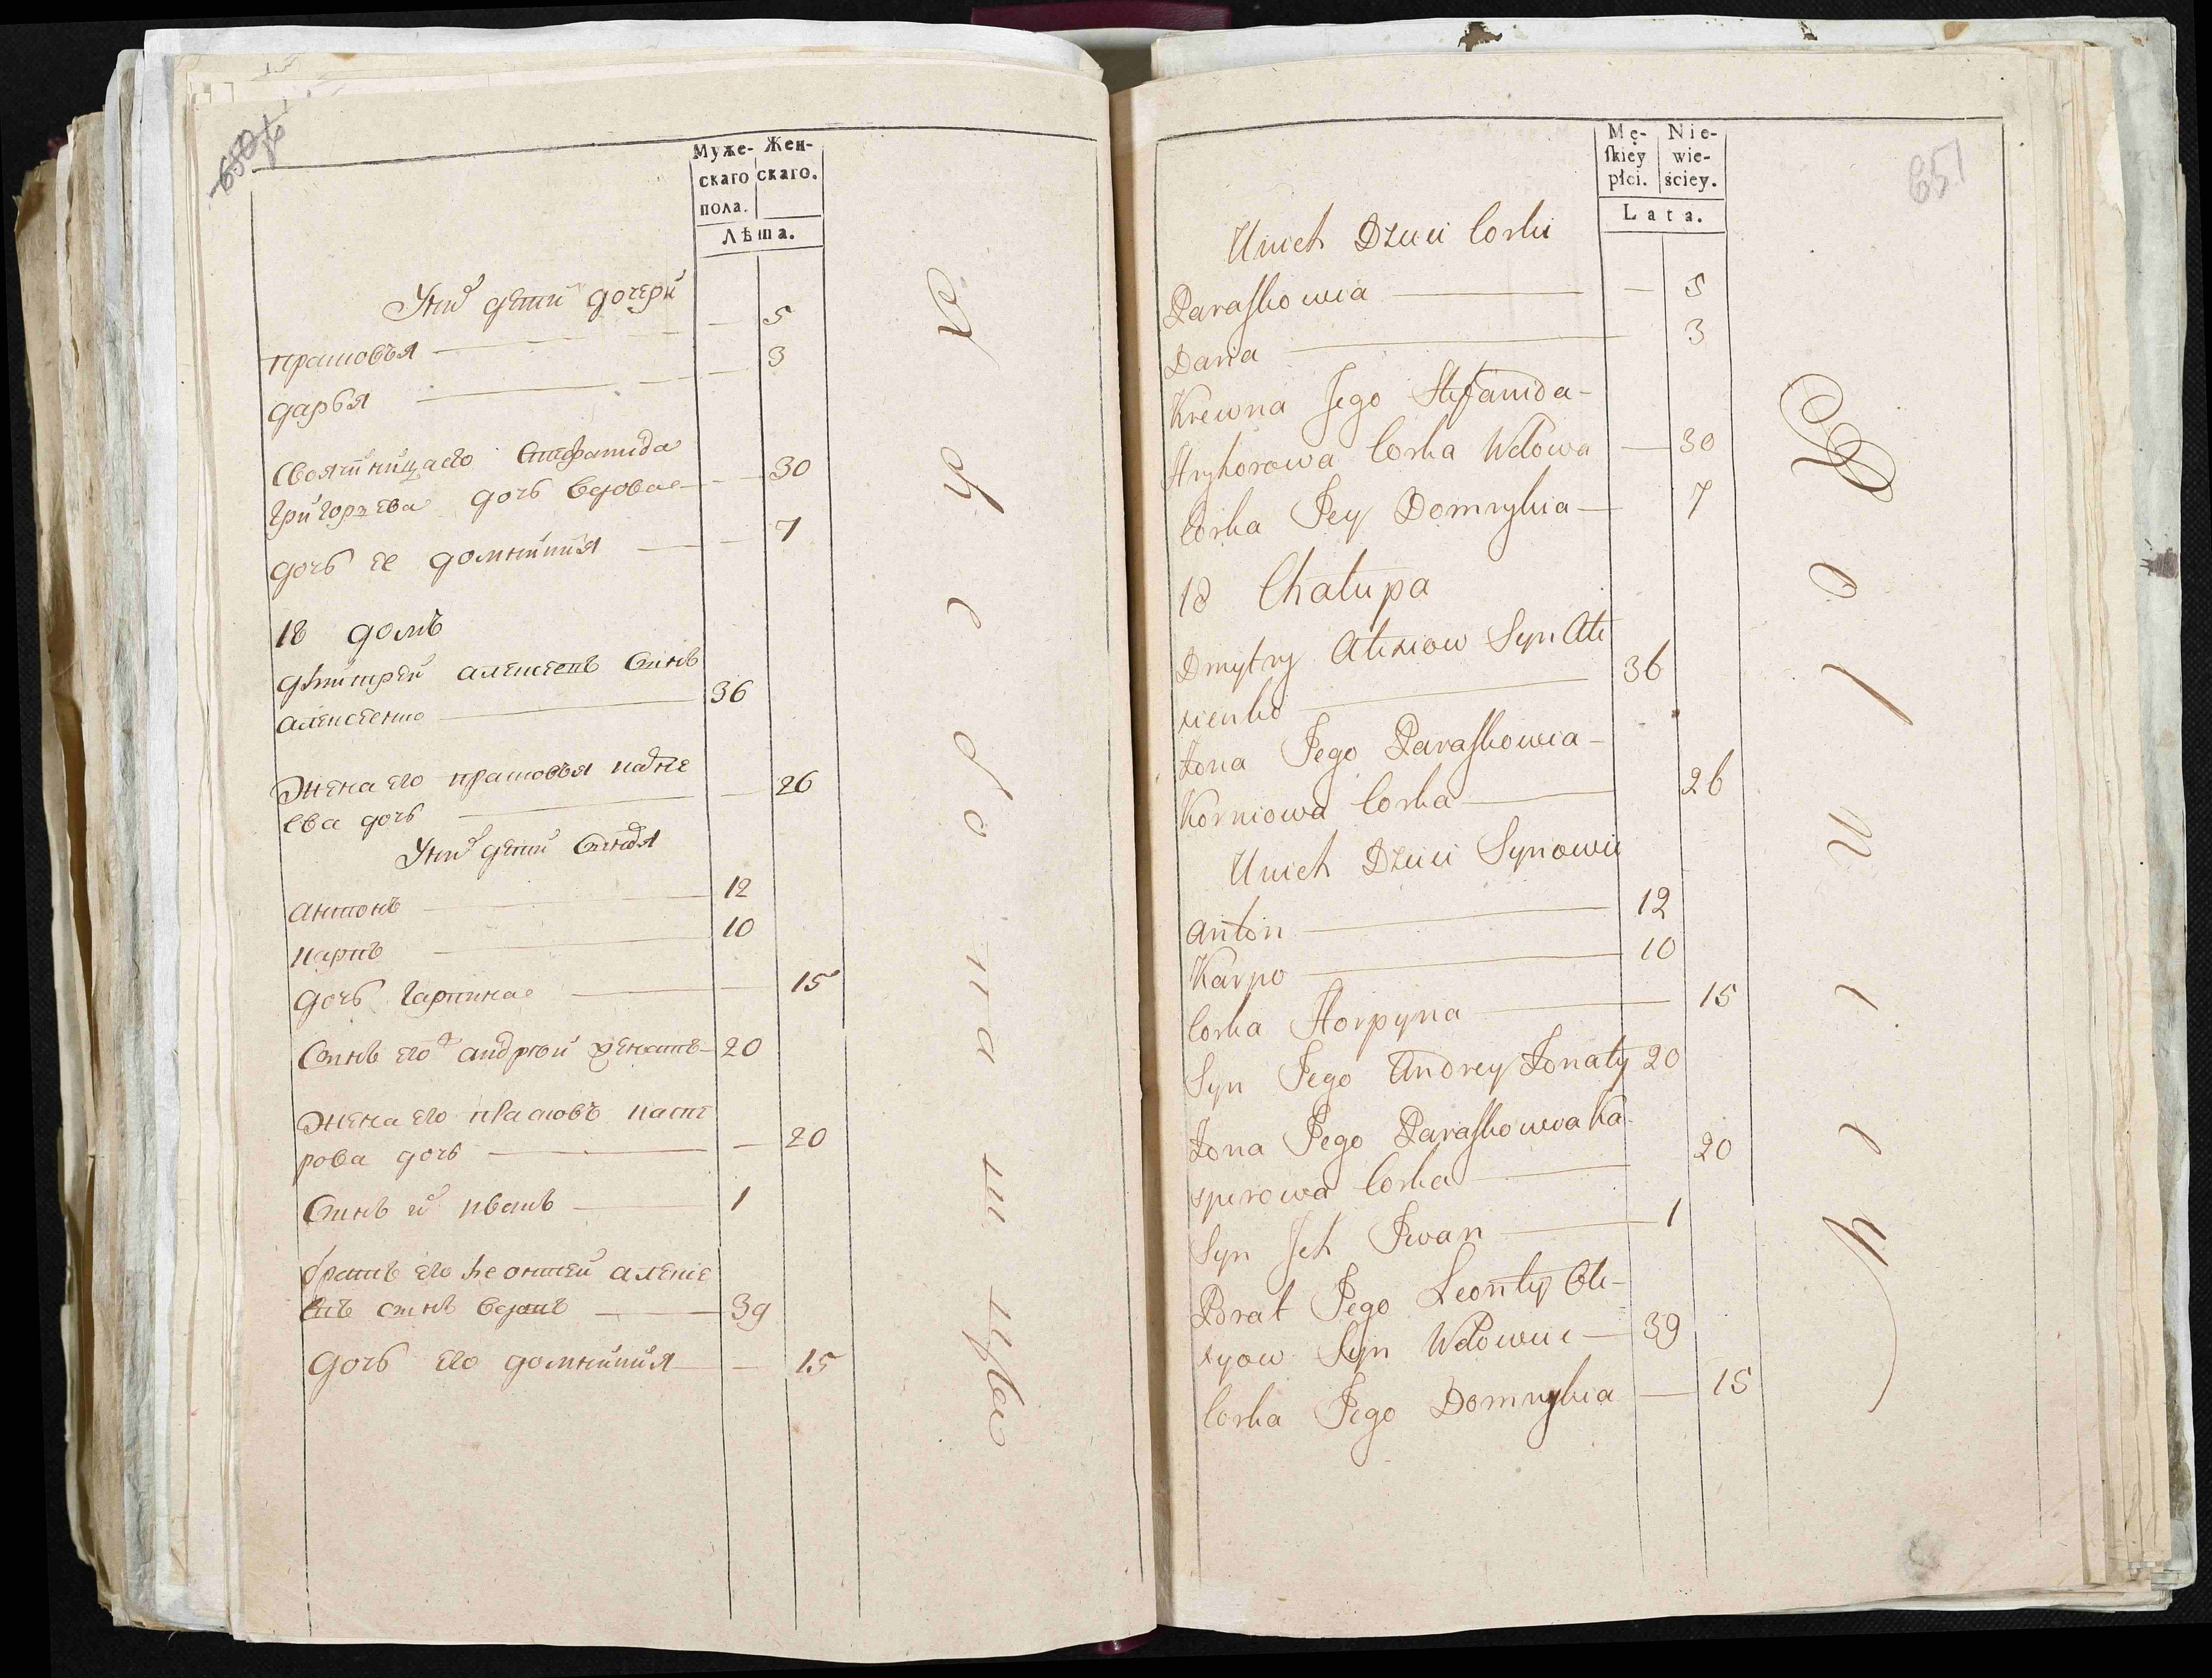 650
Муже- Жен-
скаго скаго.
пола.
Лѣта.
Унихъ дети дочери
прасковья — — 5
дарья — — 3
Свойственница его Стефанида
григорьева дочь вдова — — 30
дочь ее домникия — — 7
18 домъ
дмитрей алексеевъ Сынъ
алексеенко — 36
Жена его прасковья карне
ева дочь — — 26
Унихъ дети Сыновья
антонъ — 12
карпъ — 10
дочь гарпина — — 15
Сынъ его андрей женатъ — 20
Жена его прасковья каспе
рова дочь — — 20
Сынъ их иванъ — 1
братъ его леонтей алексе
евъ сынъ вдовъ — 39
дочь его домникия — — 15
651
Mę- Nie-
ſkiey wie-
płci. ściey.
Lata.
Unich Dzieci Corki
Paraſkowia — — 5
Daria — 3
Krewna Jego Stefanida-
Hryhorowa Corka Wdowa — 30
Corka Jey Domnykia — 7
18 Chałupa
Dmytry Alexiow Syn Ale
xienko — 36
Żona Jego Paraſkowia-
Korniowa Corka — 26
Unich Dzieci Synowie
Anton — 12
Karpo — 10
Corka Horpyna — 15
Syn Jego Andrey Żonaty 20
Żona Jego Paraſkowia Ka-
sperowa Corka — 20
Syn Jch Jwan — 1
Brat Jego Leonty Ale-
xyow Syn Wdowiec — 39
Corka Jego Domnykia — 15